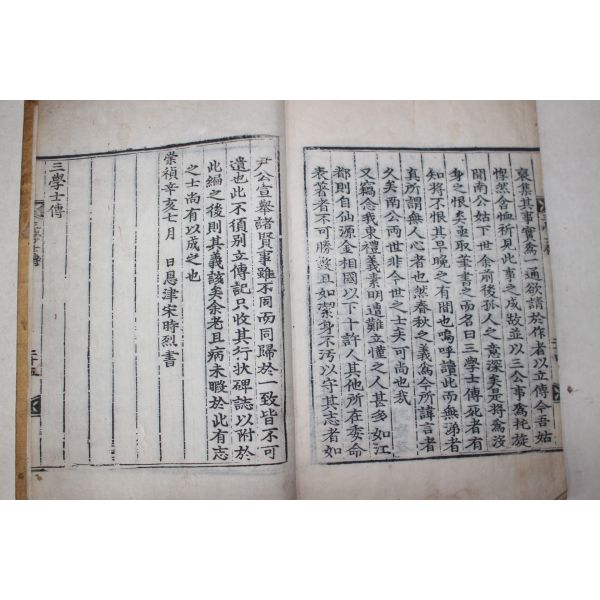 裒集其事實爲一通欲請於作者以立傳今吾姑
悼然含恤祈見此事之成故並以三公事爲托旋
聞南公姑下世余前後孤人之意深矣是將爲沒
身之恨矣亟取筆書之而名曰三學士傳死者有
知將不恨其早晚之有間也嗚呼讀此而無涕者
眞所謂無人心者也然春秋之義爲今所諱言者
久矣南公兩世非今世之士矣可尚也哉
又竊念我東禮義素明遭難立慬之人甚多如江
都則自仙源金相國以下十許人其他所在委命
表著者不可勝數且如潔身不汚以守其志者如
尹公宣擧諸賢事雖不同而同歸於一致皆不可
遺也此不須別立傳記只收其行狀碑誌以附於
此編之後則其義該矣余老且病未暇於此有志
之士尚有以成之也
崇禎辛亥七月　日恩津宋時烈書
三學士傳
三學士傳
二十五